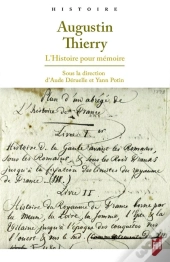 HISTOIRE
Augustin
Thierry
L'Histoire pour mémoire
Sous la direction
d'Aude Déruelle et Yann Potin
Plan d'un abrégé de
l'histoire de France
Livre I
Histoire de la Gaule avant les Romains,
sous les Romains, & sous les Rois Francs
jusqu'à la fondation des limites du royaume
de France
Livre II
Histoire du Royaume de France borné par
la Meuse, la Loire, la Somme, l'Epte & la
Vilaine jusqu'à l'époque des conquêtes vers
l'ouest & vers le sud
PUR